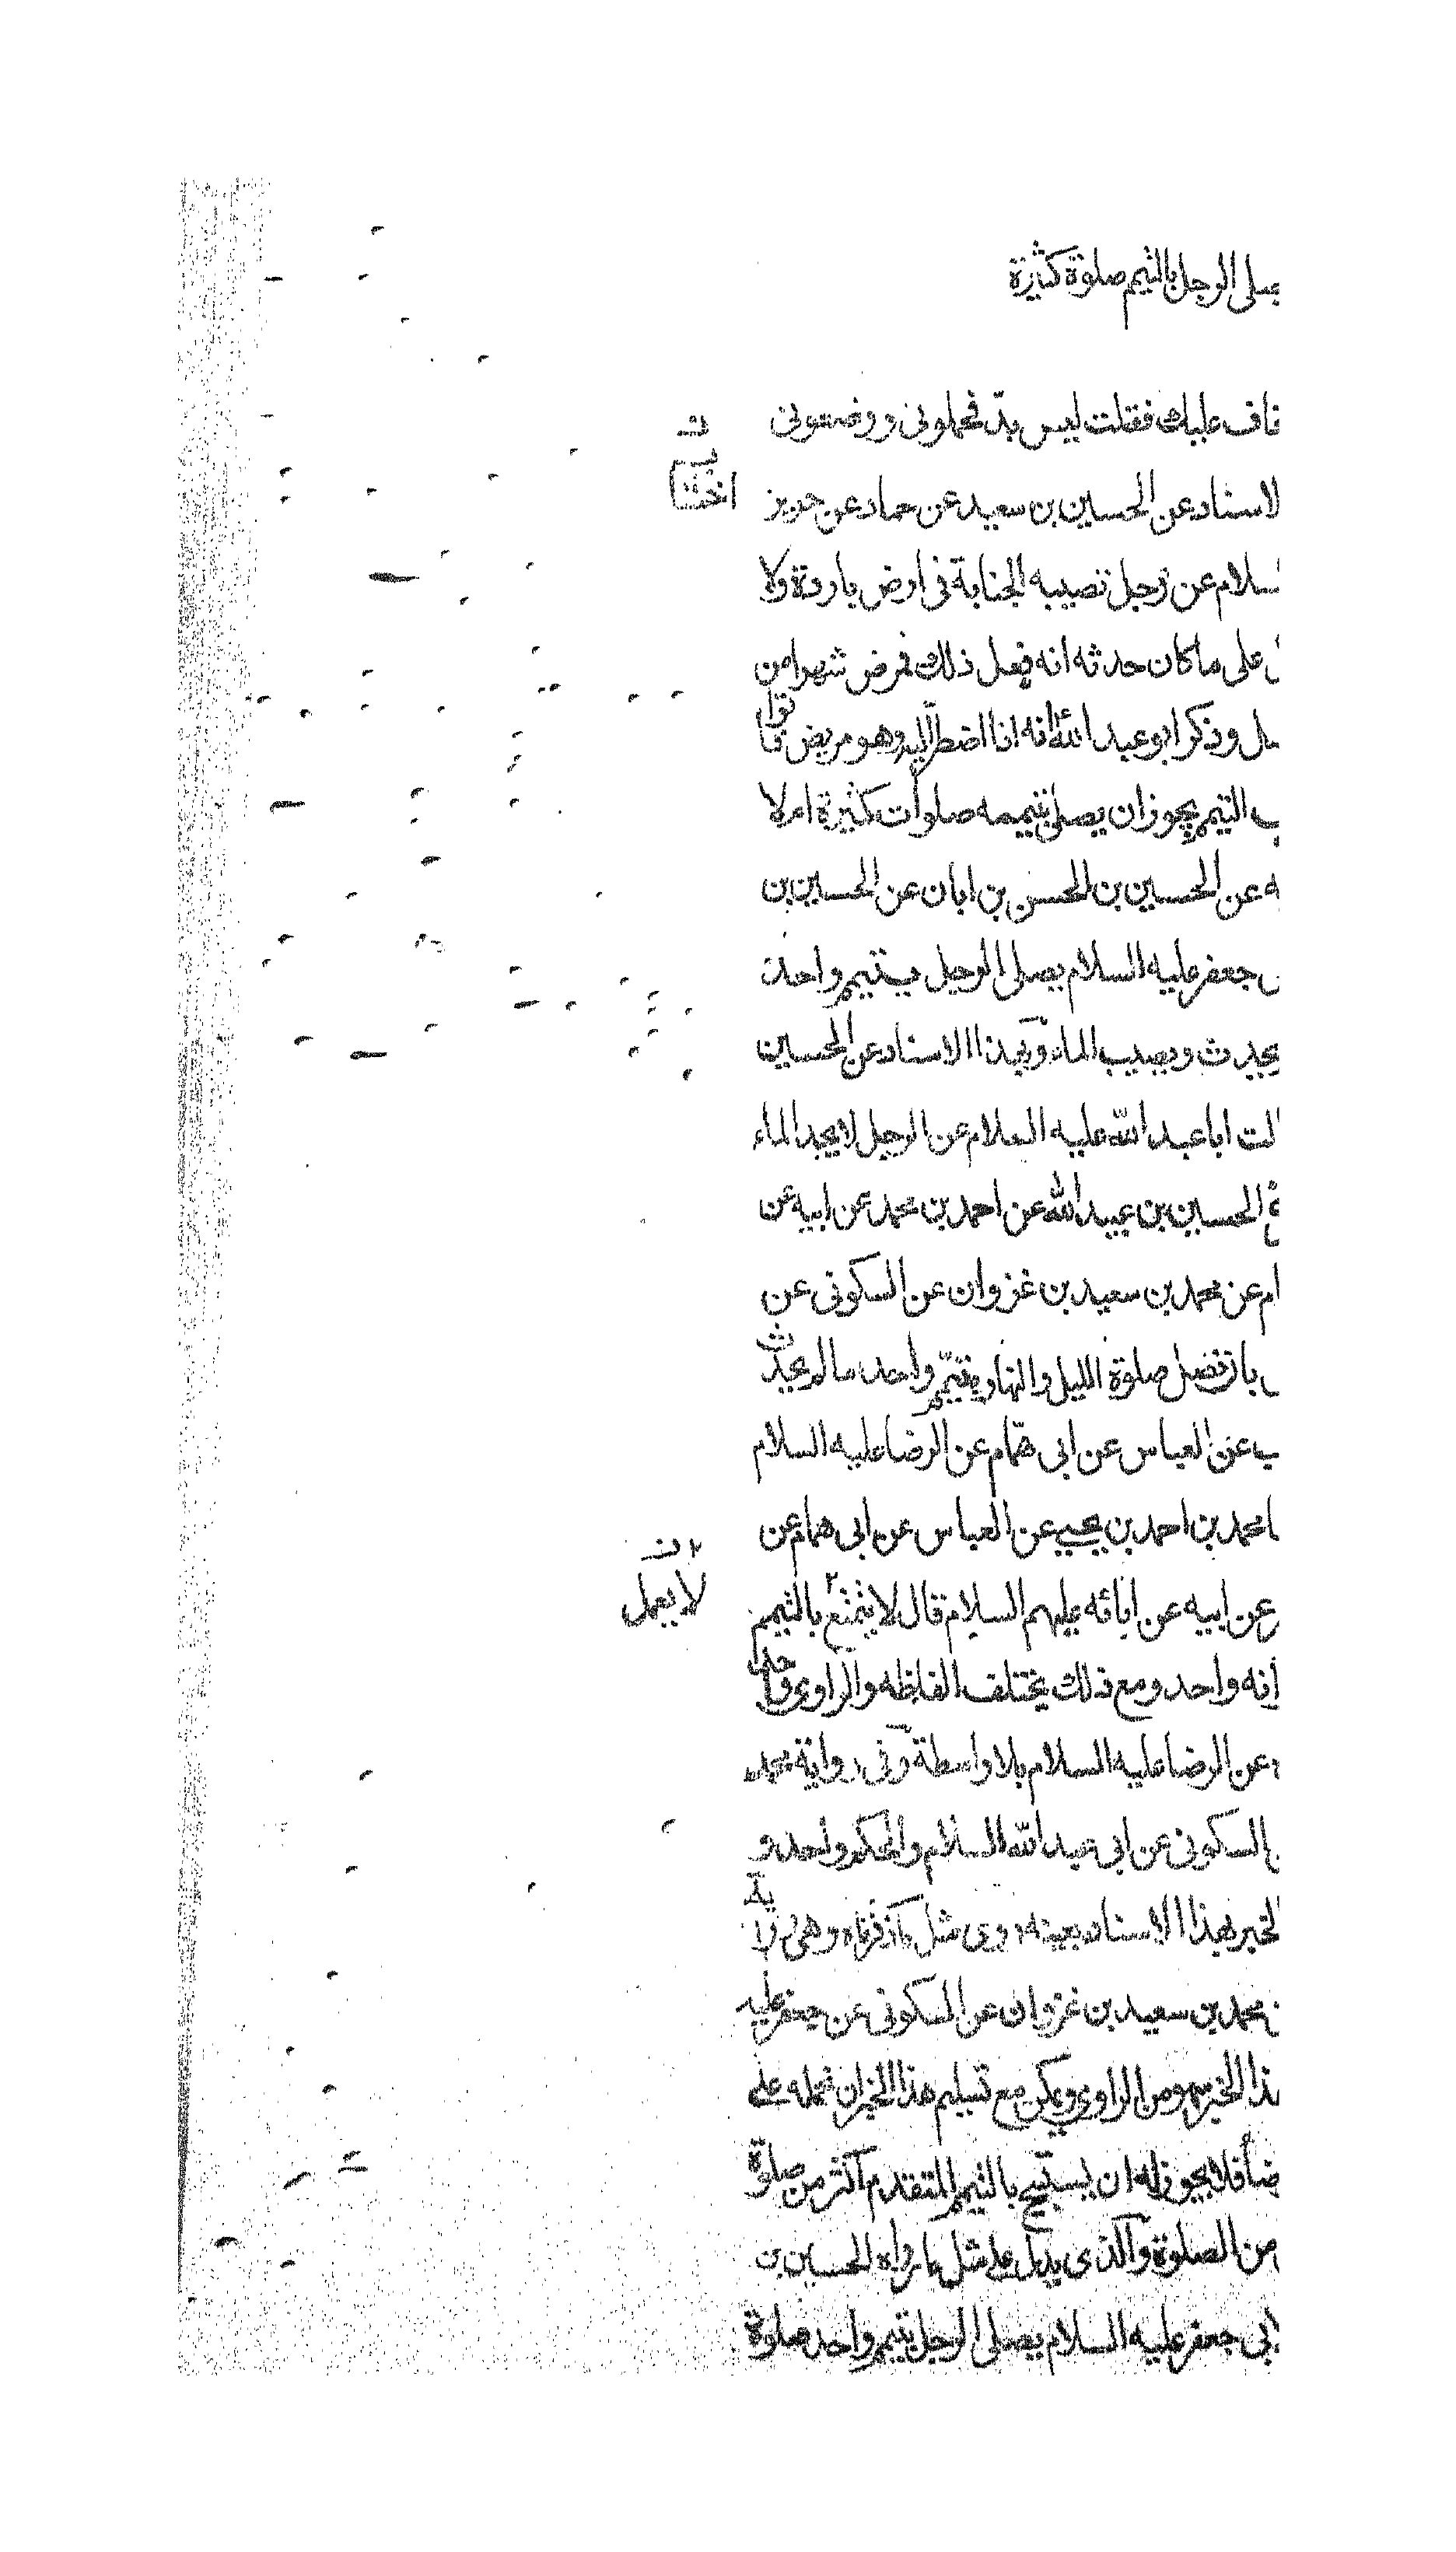 يصلى الرجل بالتيمم صلوة كثيرة
نخاف عليك فقلت ليس بدّ فحملونى ووضعونى
الاسناد عن الحسين بن سعيد عن حماد عن حريز
السلام عن رجل تصيبه الجنابة فى ارض باردة ولا
على ما كان حدثه انه فعل ذلك فمرض شهرا من
وذكر ابو عبد الله انه انا اضطرّ اليه وهو مريض فاتوا
ب التيمم يجوز ان يصلى بتيممه صلوات كثيرة ام لا
ه عن الحسين بن الحسن بن ابان عن الحسين بن
جعفر عليه السلام يصلى الرجل بتيمم واحد
يحدث ويصيب الماء وبهذا الاسناد عن الحسين
الت ابا عبد الله عليه السلام عن الرجل لا يجد الماء
الحسين بن عبيد الله عن احمد بن محمد عن ابيه عن
ام عن محمد بن سعيد بن غزوان عن السكونى عن
صلوة الليل والنهار بتيمّم واحد ما لم يحدث
ب عن العباس عن ابى همّام عن الرضا عليه السلام
محمد بن احمد بن يحيى عن العباس عن ابى همام عن
عن ابيه عن ابائه عليهم السلام قال لا يتمتع بالتيمم
انه واحد ومع ذلك يختلف الفاظه والراوى واحد
عن الرضا عليه السلام بلا واسطة وفى رواية محمد
السكونى عن ابى عبد الله السلام والحكم واحد و
الخبر بهذا الاسناد بعينه روى مثل ما ذكرناه وهى
محمد بن سعيد بن غزوان عن السكونى عن جعفر عليه
هذا الخبر سهو من الراوى ويمكن مع تسليم هذا الخبر ان نحمله على
فلا يجوز له ان يستبيح بالتيمم المتقدم اكثر من صلوة
من الصلوة والذى يدل على مثل ما رواه الحسين بن
ابى جعفر عليه السلام يصلى الرجل بتيمم واحد صلوة
لا يعمل